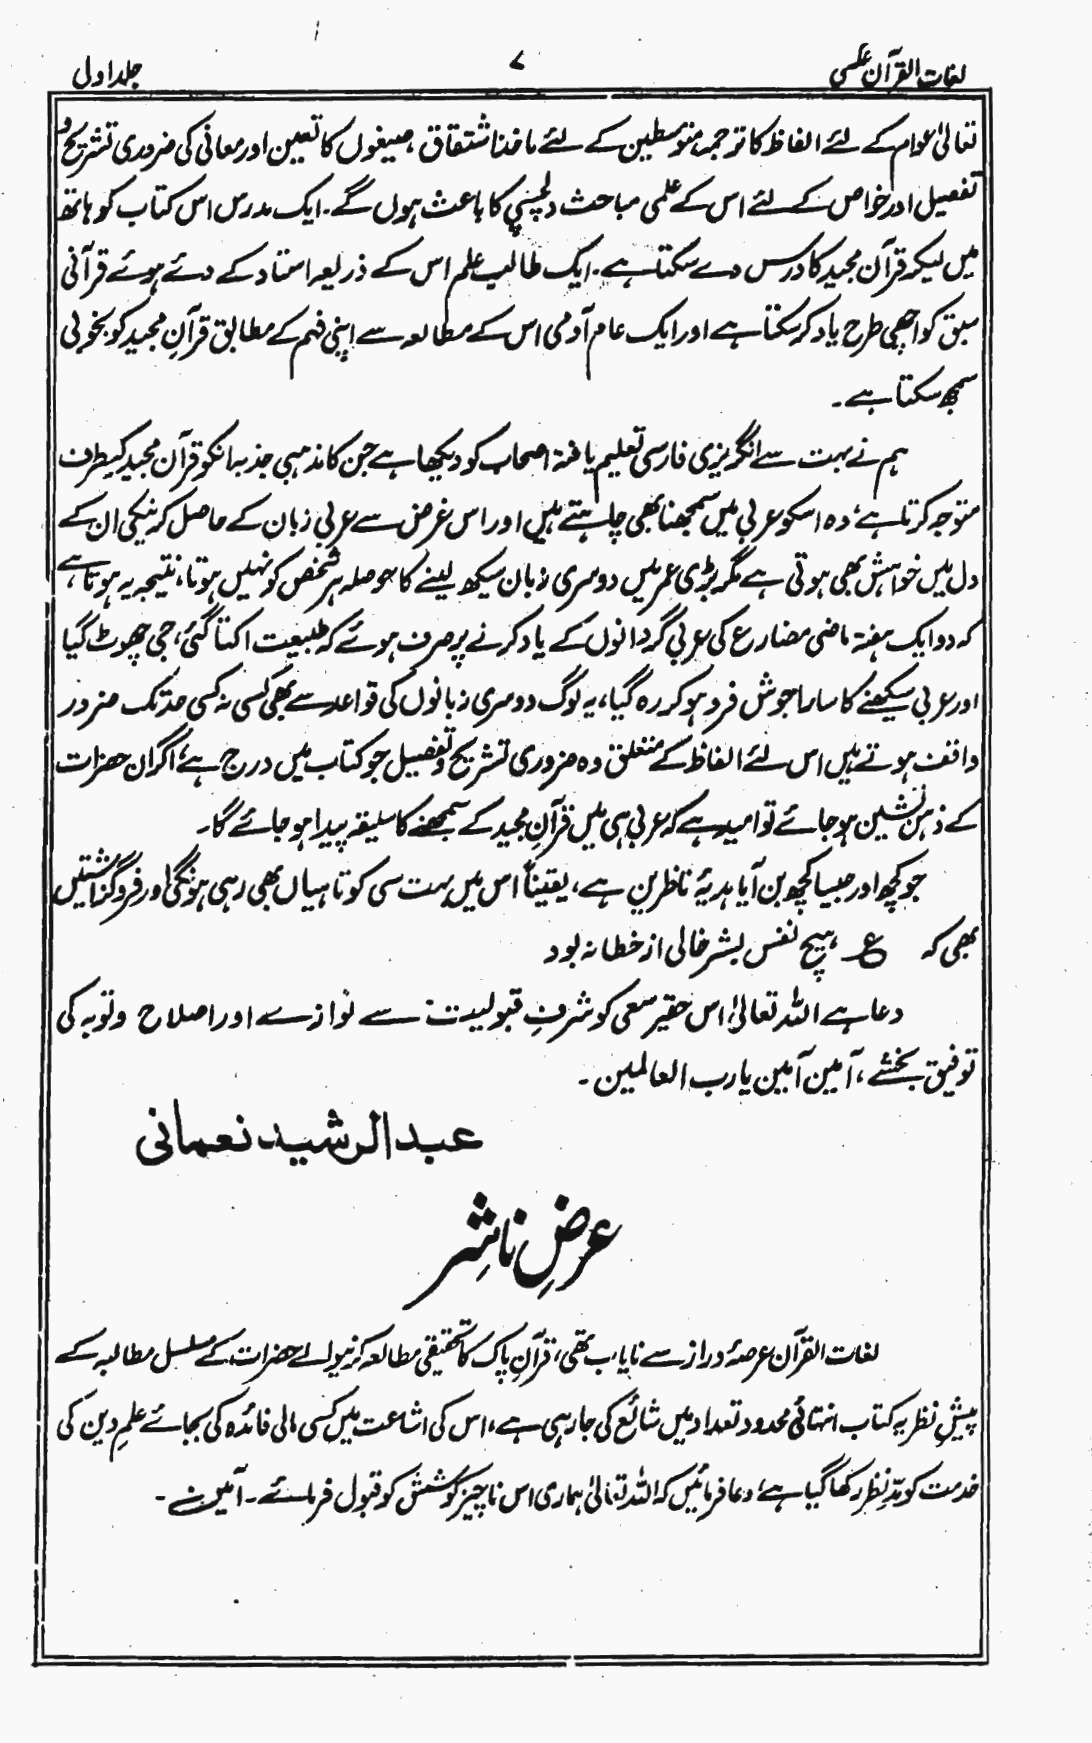 لغات القرآن عکسی ۷ جلد اول
تعالیٰ عوام کے لئے الفاظ کا ترجمہ متوسطین کے لئے ماخذ اشتقاق، صیغوں کا تعین اور معانی کی ضروری تشریح و
تفصیل اور خواص کے لئے اس کے علمی مباحث دلچسپی کا باعث ہوں گے۔ ایک مدرس اس کتاب کو ہاتھ
میں لیکر قرآن مجید کا درس دے سکتا ہے۔ ایک طالب علم اس کے ذریعہ استاد کے دئے ہوئے قرآنی
سبق کو اچھی طرح یاد کر سکتا ہے اور ایک عام آدمی اس کے مطالعہ سے اپنی فہم کے مطابق قرآنِ مجید کو بخوبی
سمجھ سکتا ہے۔
ہم نے بہت سے انگریزی فارسی تعلیم یافتہ اصحاب کو دیکھا ہے جن کا مذہبی جذبہ انکو قرآن مجید کیطرف
متوجہ کرتا ہے، وہ اسکو عربی میں سمجھنا بھی چاہتے ہیں اور اس غرض سے عربی زبان کے حاصل کرنیکی ان کے
دل میں خواہش بھی ہوتی ہے مگر بڑی عمر میں دوسری زبان سیکھ لینے کا حوصلہ ہر شخص کو نہیں ہوتا، نتیجہ یہ ہوتا ہے
کہ دو ایک ہفتہ ماضی مضارع کی عربی گردانوں کے یاد کرنے پر صرف ہوئے کہ طبیعت اکتا گئی، جی چھوٹ گیا
اور عربی سیکھنے کا سارا جوش فرو ہو کر رہ گیا، یہ لوگ دوسری زبانوں کی قواعد سے بھی کسی نہ کسی حد تک ضرور
واقف ہوتے ہیں اس لئے الفاظ کے متعلق وہ ضروری تشریح و تفصیل جو کتاب میں درج ہے، اگر ان حضرات
کے ذہن نشین ہو جائے تو امید ہے کہ عربی ہی میں قرآنِ مجید کے سمجھنے کا سلیقہ پیدا ہو جائے گا۔
جو کچھ اور جیسا کچھ بن آیا ہدیۂ ناظرین ہے، یقیناً اس میں بہت سی کوتاہیاں بھی رہی ہونگی اور فروگزاشتیں
بھی کہ ع ہیچ نفس بشر خالی از خطا نہ بود
دعا ہے اللہ تعالیٰ اس حقیر سعی کو شرفِ قبولیت سے نوازے اور اصلاح و توبہ کی
توفیق بخشے، آمین آمین یا رب العالمین۔
عبد الرشید نعمانی
عرضِ ناشر
لغات القرآن عرصۂ دراز سے نایاب تھی، قرآنِ پاک کا تحقیقی مطالعہ کرنیوالے حضرات کے مسلسل مطالبہ کے
پیشِ نظر یہ کتاب انتہائی محدود تعداد میں شائع کی جا رہی ہے، اس کی اشاعت میں کسی مالی فائدہ کی بجائے علمِ دین کی
خدمت کو مدِّ نظر رکھا گیا ہے، دعا فرمائیں کہ اللہ تعالیٰ ہماری اس ناچیز کوشش کو قبول فرمائے۔ آمین۔